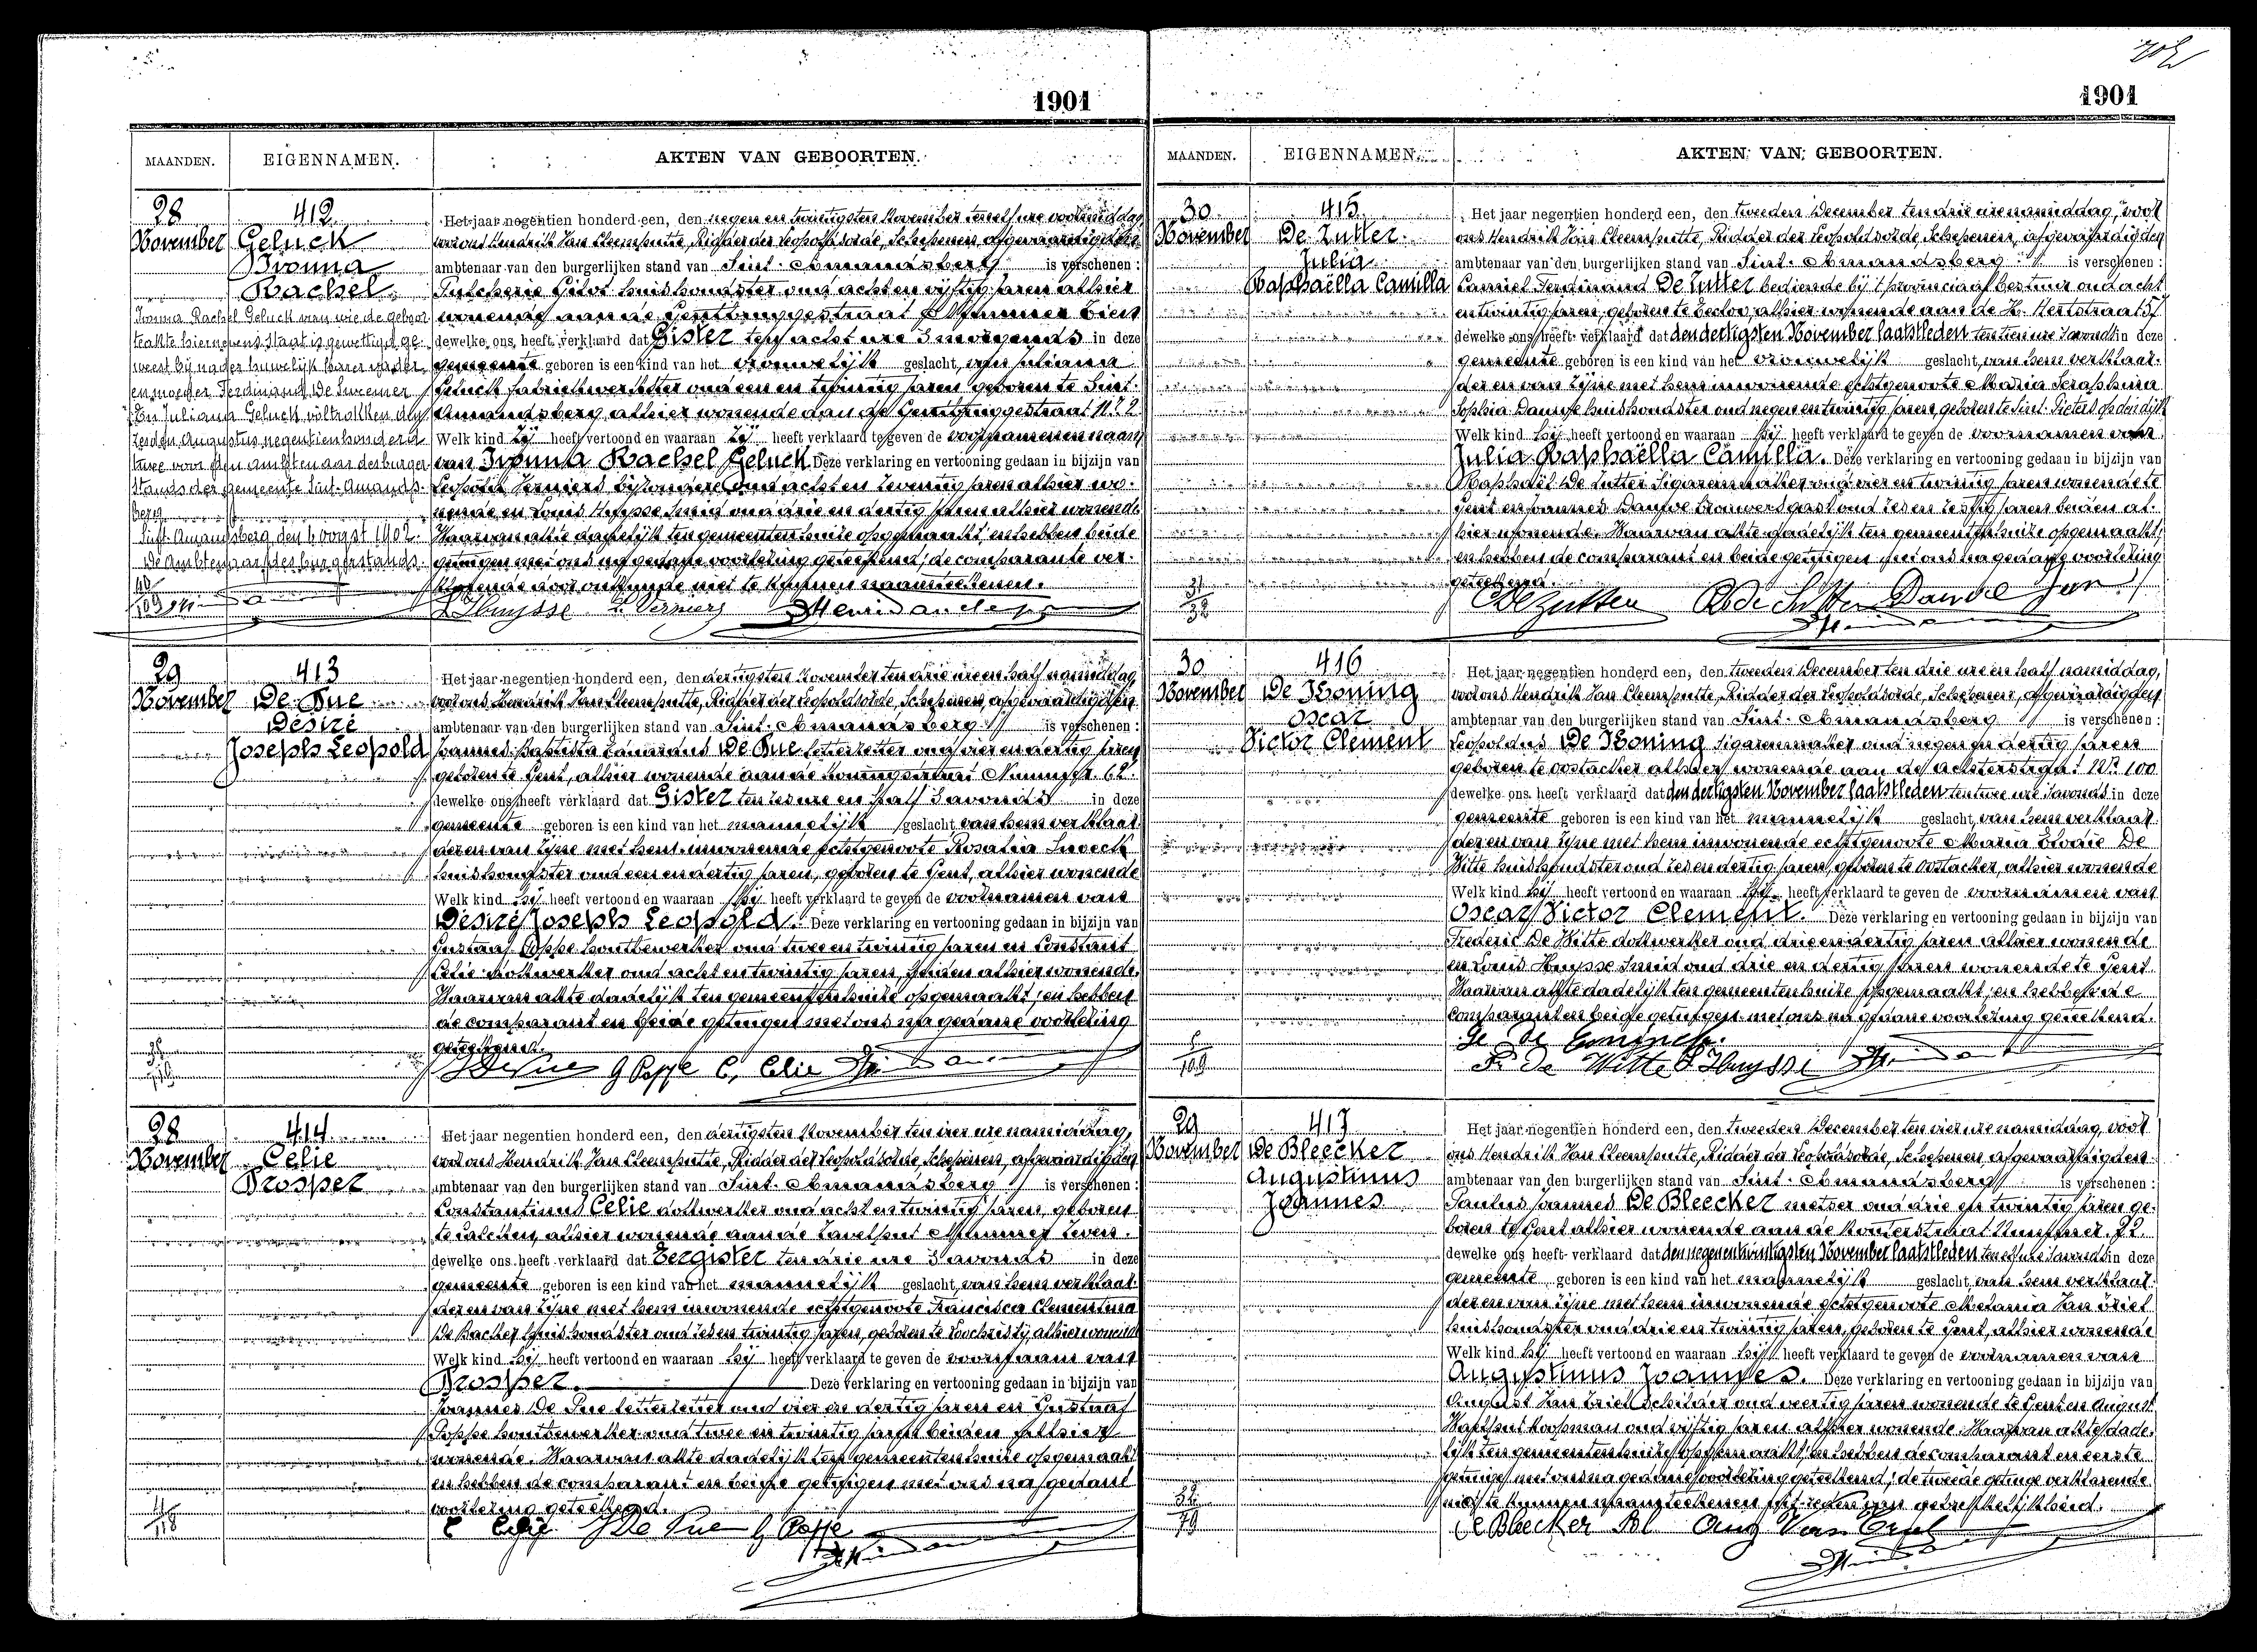 1901
MAANDEN. EIGENNAMEN. AKTEN VAN GEBOORTEN.
28 November
412
Geluck
Ivonna
Rachel
Ivonna Rachel Geluck van wie de geboor
teakte hiernevens staat is gewettigd ge
weest bij nader huwelijk harer vader
en moeder Ferdinand De Sweemer
En Juliana Geluck voltrokken den
zesden Augustus negentienhonderd
twee voor den Ambtenaar des burger
stands der gemeente Sint-Amands
berg
Sint-Amandsberg den oogst 1902.
De Ambtenaar des burgerstands.
Het jaar negentien honderd een, den negen en twintigsten November ten elf ure voormiddag
voor ons Hendrik Van Cleemputte, Ridder der Leopoldsorde, Schepenen, afgevaardigden
ambtenaar van den burgerlijken stand van Sint-Amandsberg is verschenen:
Pulcherie huishoudster oud acht en vijftig jaren alhier
wonende aan de Gentbruggestraat Nummer
dewelke ons heeft verklaard dat Gister ten acht ure 's morgends in deze
gemeente geboren is een kind van het vrouwelijk geslacht, van Juliana
Geluck fabriekwerkster oud een en twintig jaren geboren te Sint-
Amandsberg alhier wonende aan de Gentbruggestraat N.º 2
Welk kind zij heeft vertoond en waaraan zij heeft verklaard te geven de voornamen en naam
van Ivonna Rachel Geluck Deze verklaring en vertooning gedaan in bijzijn van
Leopold Verniers bijzondere oud acht en zeventig jaren alhier wo-
nende en Louis Huysse smid oud drie en dertig jaren alhier wonende
Waarvan akte dadelijk ten gemeentenhuize opgemaakt, en hebben beide
getuigen met ons na gedane voorlezing geteekend; de comparante ver-
klarende door onkunde niet te kunnen naamteekenen.
L Huysse L Verniers
29 November
413
De Pue
Désiré
Joseph Leopold
Het jaar negentien honderd een, den dertigsten November ten drie ure en half namiddag,
voor ons Hendrik Van Cleemputte, Ridder der Leopoldsorde, Schepenen, afgevaardigden
ambtenaar van den burgerlijken stand van Sint-Amandsberg is verschenen:
Joannes Baptista Eduardus De Pue letterzetter oud vier en dertig jaren
geboren te Gent, alhier wonende aan de Koningstraat Nummer 62.
dewelke ons heeft verklaard dat Gister ten zes ure en half 's avonds in deze
gemeente geboren is een kind van het mannelijk geslacht, van hem verklaar-
der en van zijne met hem inwonende echtgenoote Rosalia
huishoudster oud een en dertig jaren, geboren te Gent, alhier wonende
Welk kind hij heeft vertoond en waaraan hij heeft verklaard te geven de voornamen van
Désiré Joseph Leopold. Deze verklaring en vertooning gedaan in bijzijn van
Gustaaf Poppe houtbewerker oud twee en twintig jaren en Constant
Celie dokwerker oud acht en twintig jaren, beiden alhier wonende.
Waarvan akte dadelijk ten gemeentenhuize opgemaakt, en hebben
de comparant en beide getuigen met ons na gedane voorlezing
geteekend.
G Poppe C. Celie
28 November
414
Celie
Prosper
Het jaar negentien honderd een, den dertigsten November ten vier ure namiddag,
voor ons Hendrik Van Cleemputte, Ridder der Leopoldsorde, Schepenen, afgevaardigden
ambtenaar van den burgerlijken stand van Sint-Amandsberg is verschenen:
Constantinus Celie dokwerker oud acht en twintig jaren, geboren
te Calcken, alhier wonende aan de Zavelput Nummer Zeven.
dewelke ons heeft verklaard dat Eergister ten drie ure 's avonds in deze
gemeente geboren is een kind van het mannelijk geslacht, van hem verklaar-
der en van zijne met hem inwonende echtgenoote Francisca Clementina
De Backer huishoudster oud zes en twintig jaren, geboren te Loochristij alhier wonende
Welk kind hij heeft vertoond en waaraan hij heeft verklaard te geven de voornaam van
Prosper. Deze verklaring en vertooning gedaan in bijzijn van
Joannes De Pue letterzetter oud vier en dertig jaren en Gustaaf
Poppe houtbewerker oud twee en twintig jaren beiden alhier
wonende. Waarvan akte dadelijk ten gemeentenhuize opgemaakt
en hebben de comparant en beide getuigen met ons na gedane
voorlezing geteekend.
C Celie G Poppe
1901
MAANDEN. EIGENNAMEN. AKTEN VAN GEBOORTEN.
30 November
415
De Zutter
Julia
Raphaëlla Camilla
Het jaar negentien honderd een, den tweeden December ten drie ure namiddag, voor
ons Hendrik Van Cleemputte, Ridder der Leopoldsorde, Schepenen, afgevaardigden
ambtenaar van den burgerlijken stand van Sint-Amandsberg is verschenen:
Camiel Ferdinand De Zutter bediende bij 't provinciaal bestuur oud acht
en twintig jaren, geboren te Eecloo, alhier wonende aan de H. Hertstraat 57
dewelke ons heeft verklaard dat den dertigsten November laatstleden ten tien ure 's avonds in deze
gemeente geboren is een kind van het vrouwelijk geslacht, van hem verklaar-
der en van zijne met hem inwonende echtgenoote Maria Seraphina
Sophia Dauwe huishoudster oud negen en twintig jaren, geboren te Sint-Pieters op den dijk
Welk kind hij heeft vertoond en waaraan hij heeft verklaard te geven de voornamen van
Julia Raphaëlla Camilla. Deze verklaring en vertooning gedaan in bijzijn van
Raphaël De Zutter Sigarenmaker oud vier en twintig jaren wonende te
Gent en Joannes Dauwe Brouwersgast oud zes en zestig jaren beiden al-
hier wonende. Waarvan akte dadelijk ten gemeentenhuize opgemaakt
en hebben de comparant en beide getuigen met ons na gedane voorlezing
geteekend.
C De Zutter R De Zutter Dauwe Jan
30 November
416
De Koning
Oscar
Victor Clement
Het jaar negentien honderd een, den tweeden December ten drie ure en half namiddag,
voor ons Hendrik Van Cleemputte, Ridder der Leopoldsorde, Schepenen, afgevaardigden
ambtenaar van den burgerlijken stand van Sint-Amandsberg is verschenen:
Leopoldus De Koning Sigarenmaker oud negen en dertig jaren
geboren te Oostacker alhier wonende aan de Achterstraat N.º 100
dewelke ons heeft verklaard dat den dertigsten November laatstleden ten twee ure 's avonds in deze
gemeente geboren is een kind van het mannelijk geslacht, van hem verklaar-
der en van zijne met hem inwonende echtgenoote Maria Elodie De
Witte huishoudster oud zes en dertig jaren, geboren te Oostacker, alhier wonende
Welk kind hij heeft vertoond en waaraan hij heeft verklaard te geven de voornamen van
Oscar Victor Clement. Deze verklaring en vertooning gedaan in bijzijn van
Frederic De Witte dokwerker oud drie en dertig jaren alhier wonende
en Louis Huysse Smid oud drie en dertig jaren wonende te Gent.
Waarvan akte dadelijk ten gemeentenhuize opgemaakt, en hebben de
comparant en beide getuigen met ons na gedane voorlezing geteekend.
Fr. De Witte L Huysse
29 November
417
De Bleecker
Augustinus
Joannes
Het jaar negentien honderd een, den tweeden December ten vier ure namiddag, voor
ons Hendrik Van Cleemputte, Ridder der Leopoldsorde, Schepenen afgevaardigden
ambtenaar van den burgerlijken stand van Sint-Amandsberg is verschenen:
Paulus Joannes De Bleecker metser oud drie en twintig jaren ge-
boren te Gent alhier wonende aan de Nummer 72
dewelke ons heeft verklaard dat den negenentwintigsten November laatstleden ten elf ure 's avonds in deze
gemeente geboren is een kind van het mannelijk geslacht, van hem verklaar-
der en van zijne met hem inwonende echtgenoote Melania Van Driel
huishoudster oud drie en twintig jaren, geboren te Gent, alhier wonende
Welk kind hij heeft vertoond en waaraan hij heeft verklaard te geven de voornamen van
Augustinus Joannes. Deze verklaring en vertooning gedaan in bijzijn van
August Van Driel Schilder oud veertig jaren wonende te Gent en August
koopman oud vijftig jaren alhier wonende. Waarvan akte dade-
lijk ten gemeentenhuize opgemaakt, en hebben de comparant en eerste
getuige met ons na gedane voorlezing geteekend; de tweede getuige verklarende
niet te kunnen naamteekenen uit reden van gebrekkelijkheid.
De Bleecker Aug Van